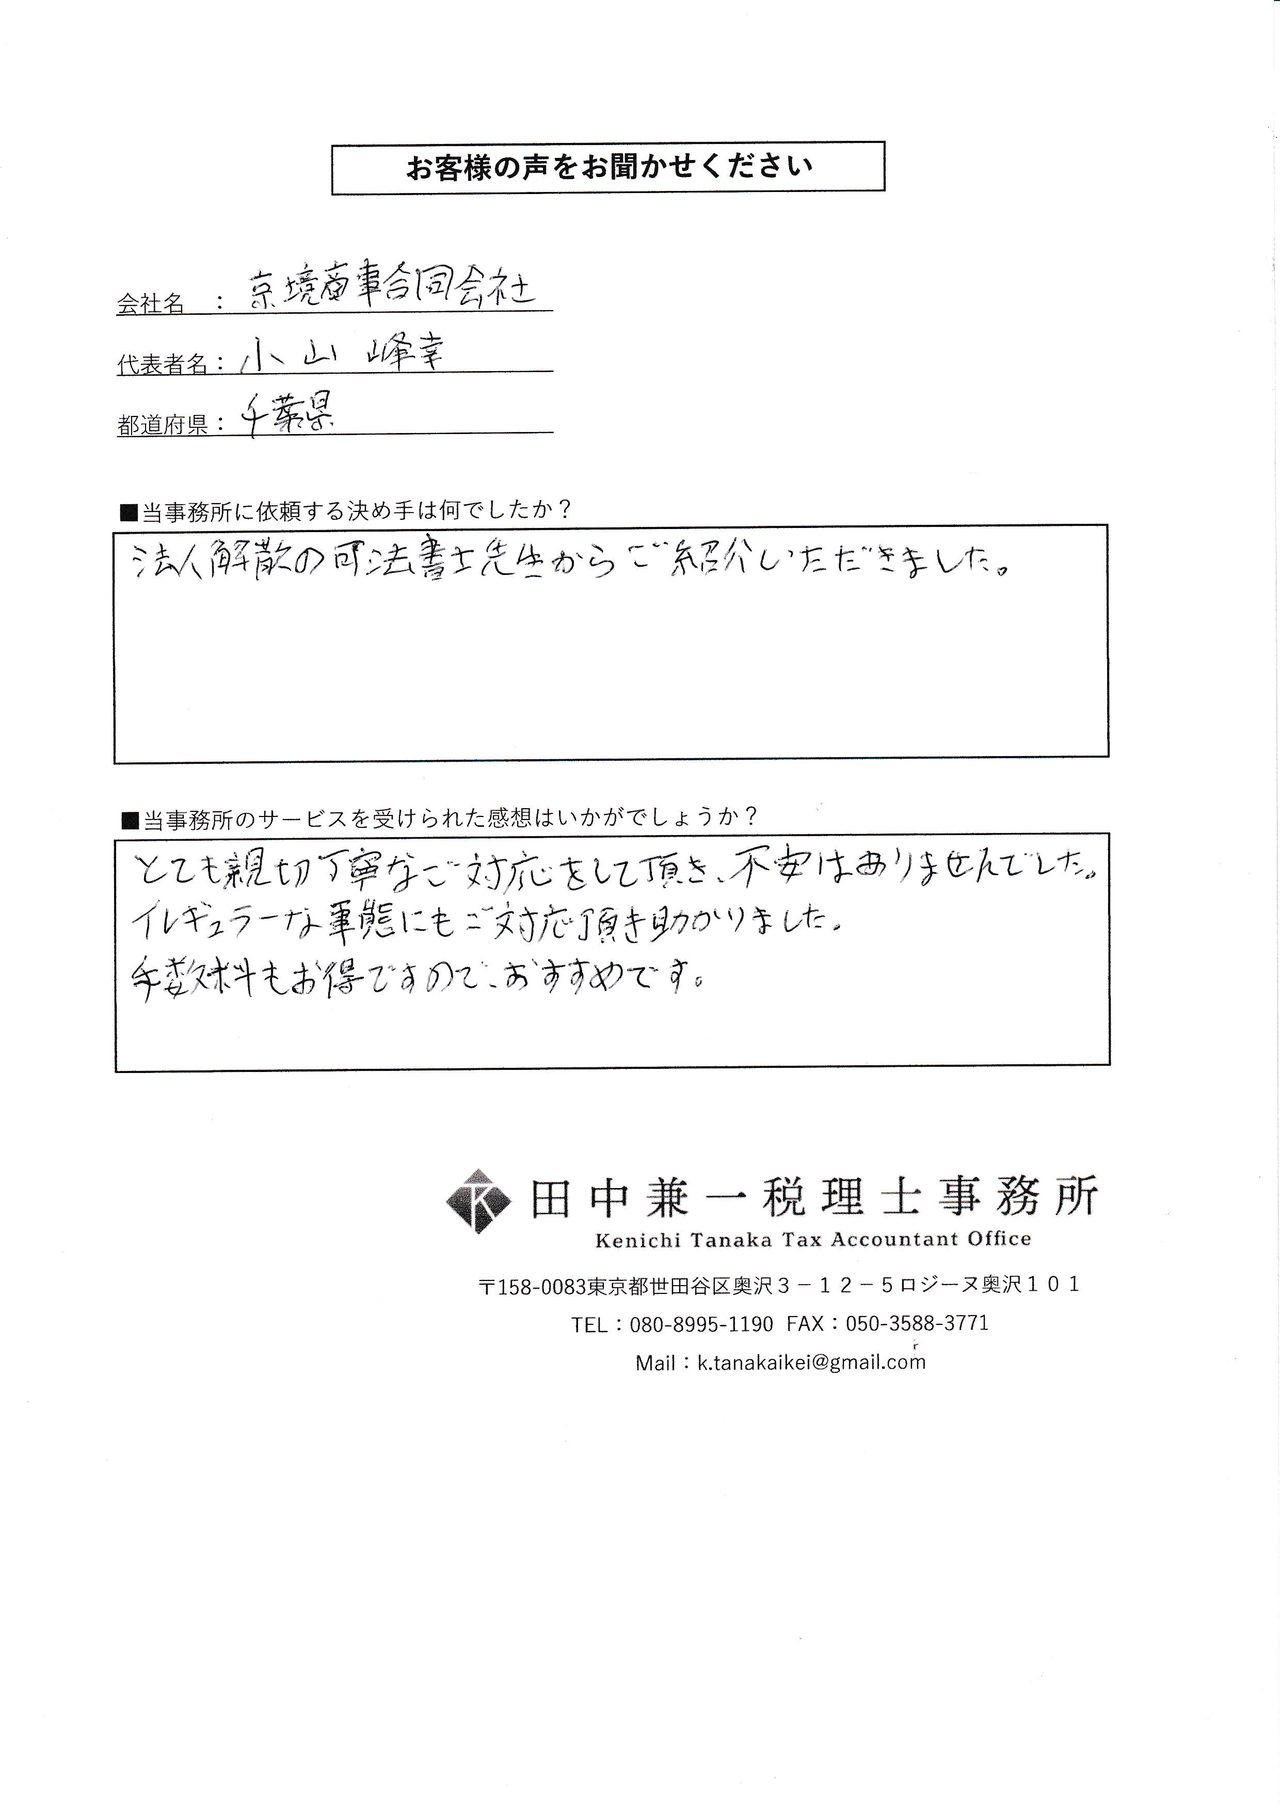 お客様の声をお聞かせください
会社名 ： 京境商事合同会社
代表者名： 小山 峰幸
都道府県： 千葉県
■当事務所に依頼する決め手は何でしたか？
法人解散の司法書士先生からご紹介いただきました。
■当事務所のサービスを受けられた感想はいかがでしょうか？
とても親切丁寧なご対応をして頂き、不安はありませんでした。
イレギュラーな事態にもご対応頂き助かりました。
手数料もお得ですので、おすすめです。
K
田中兼一税理士事務所
Kenichi Tanaka Tax Accountant Office
〒158-0083東京都世田谷区奥沢３－１２－５ロジーヌ奥沢１０１
TEL：080-8995-1190 FAX：050-3588-3771
Mail：k.tanakaikei@gmail.com